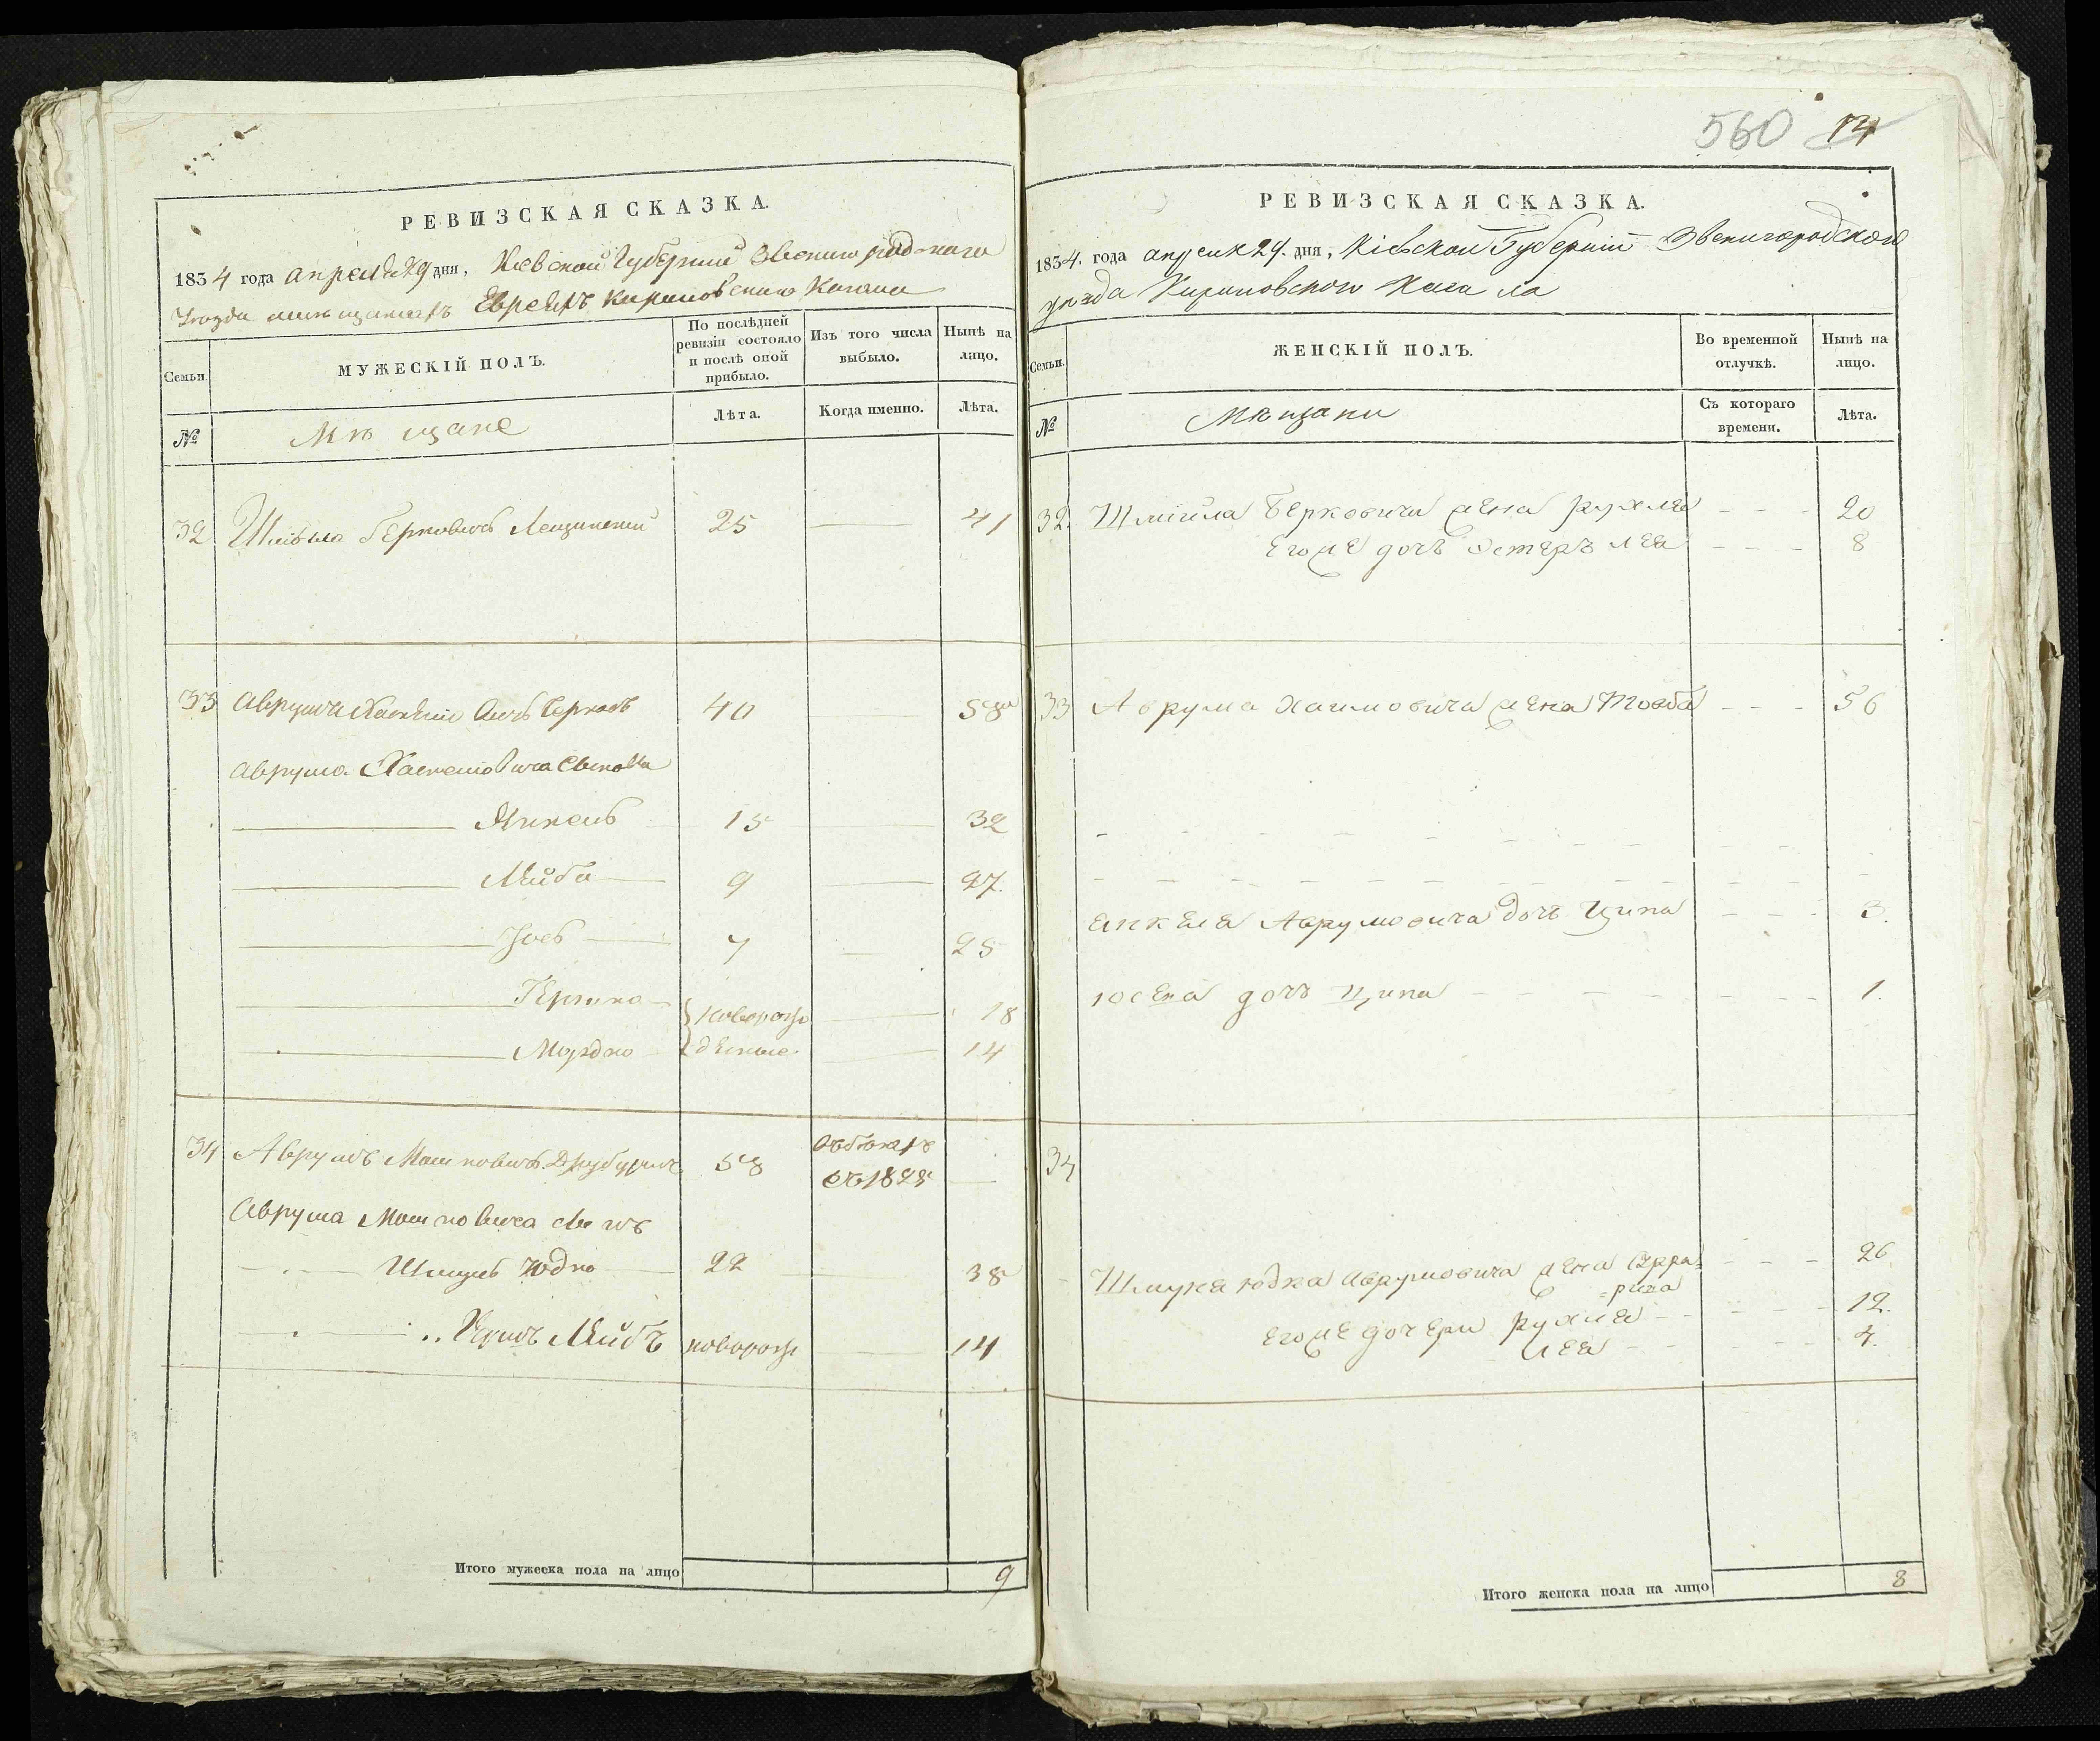 РЕВИЗСКАЯ СКАЗКА.
1834 года апреля 29 дня, Киевской Губернии Звенигородскаго
Уезда мещанамъ Евреямъ Кириловскаго Кагала
Семьи.
МУЖЕСКІЙ ПОЛЪ.
По послѣдней ревизіи состояло и послѣ оной прибыло.
Изъ того числа выбыло.
Нынѣ на лицо.
№
Мѣщане
Лѣта.
Когда именно.
Лѣта.
32 Берковичъ Лещинский 25 41
33 Аврумъ 40 58
Аврума Сыновья
Янкель 15 32
Лейба 9 27.
Іось 7 25
Гершко новорож 18
Мордко денные. 14
34 Аврумъ Мошковичъ 58
съ 1828
Аврума Мошковича сынъ
Шмуль Юдко 22 38
Лейбъ новорож 14
Итого мужеска пола на лицо 9
560 14
РЕВИЗСКАЯ СКАЗКА.
1834. года апреля 29. дня, Кіевской Губерніи Звенигородскаго
уезда Кириловскаго Кагала
Семьи.
ЖЕНСКІЙ ПОЛЪ.
Во временной отлучкѣ.
Нынѣ на лицо.
№
Мѣщанки
Съ котораго времени.
Лѣта.
32. Шмійла Берковича жена Рухля 20
Егоже дочь Эстеръ Лея 8
33 Аврума Хаимовича жена Товба 56
Янкеля Аврумовича дочь Ципа 3.
Іосея дочь Ципа 1.
34
Шмуля Юдка Аврумовича жена 26
Егоже дочери Рухля 12.
Лея 4.
Итого женска пола на лицо 8